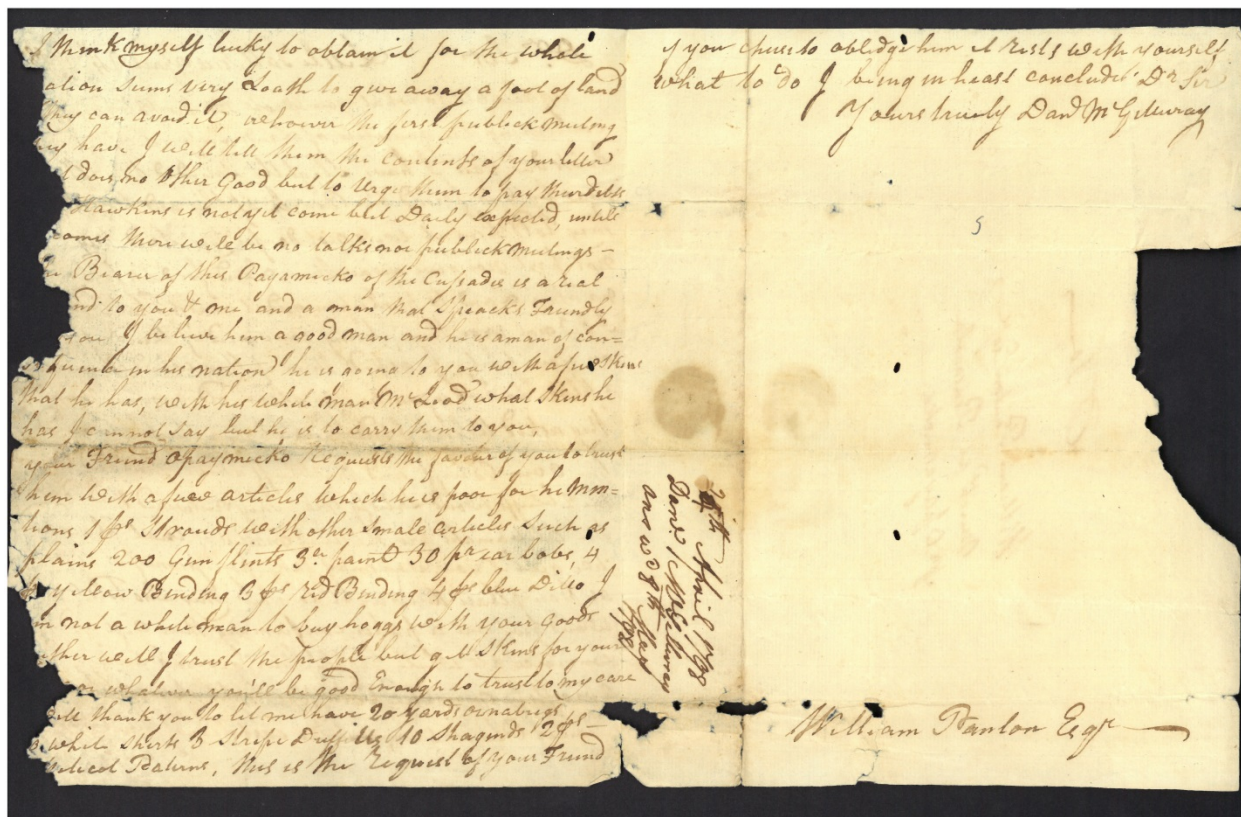 I think myself lucky to obtain it for the whole
ation sums very Loath to give away a foot of land
they can avoid it, however the first publick meeting
they have I will tell them the contents of your letter
it does no other Good but to Urge them to pay their debts
Hawkins is not yet come but Daily expected, untill
comes there will be no talks nor publick meetings –
Bearer of this Opayamicko of the Cussadis is a real
nd to you & me and a man that Speaks Friendly
you I believe him a good man and he is a man of con=
in his nation he is going to you with a few Skins
that he has, with his white man McLeod what Skins he
has I cannot say but he is to carry them to you,
your Friend Opaymicko Requests the favour of you to trust
him with a fuw articles which he is poor for
1 ps Strouds with other Smale articles Such as
plains 200 Gun flints 3 paint 30 pr ear bobs, 4
yellow Binding 3 ps red Binding 4 ps blue Ditto I
m not a white man to buy hoggs with your Goods
ther will I trust the people but gitt Skins for your
whatever you'll be good Enough to trust to my care
thank you to let me have 20 yards ornabrigs
white Shirts 3 Stripe 10 2 ps
licol Paterns, this is the Request of your Friend
if you chuse to obledge him it Rests with yourself
what to do I being in heast conclude Dr Sir
Yours truely Danl McGillivray
5
24th April 1798
Danl McGillivray
answd 8th May
1798
William Panton Esqr